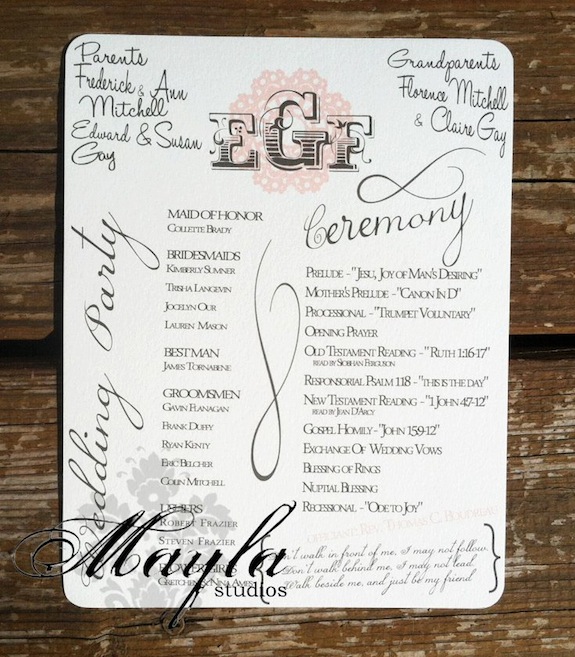 Parents
Frederick & Ann
Mitchell
Edward & Susan
Gay
Grandparents
Florence Mitchell
& Claire Gay
EGF
Wedding Party
MAID OF HONOR
COLLETTE BRADY
BRIDESMAIDS
KIMBERLY SUMNER
TRISHA LANGEVIN
JOCELYN OUR
LAUREN MASON
BEST MAN
JAMES TORNABENE
GROOMSMEN
GAVIN FLANAGAN
FRANK DUFFY
RYAN KENTY
ERIC BELCHER
COLIN MITCHELL
USHERS
ROBERT FRAZIER
STEVEN FRAZIER
FLOWERGIRLS
GRETCHEN & NINA AMES
Ceremony
PRELUDE - "JESU, JOY OF MAN'S DESIRING"
MOTHER'S PRELUDE - "CANON IN D"
PROCESSIONAL - "TRUMPET VOLUNTARY"
OPENING PRAYER
OLD TESTAMENT READING - "RUTH 1:16-17"
READ BY SIOBHAN FERGUSON
RESPONSORIAL PSALM 118 - "THIS IS THE DAY"
NEW TESTAMENT READING - "1 JOHN 4:7-12"
READ BY JEAN D'ARCY
GOSPEL HOMILY - "JOHN 15:9-12"
EXCHANGE OF WEDDING VOWS
BLESSING OF RINGS
NUPTIAL BLESSING
RECESSIONAL - "ODE TO JOY"
OFFICIANT: REV. THOMAS C. BOUDREAU
Don't walk in front of me, I may not follow.
Don't walk behind me, I may not lead.
Walk beside me, and just be my friend
Mayla
studios